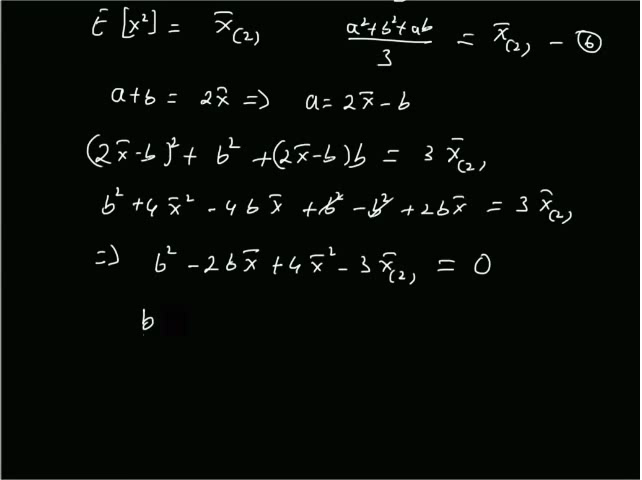 E [x²] = x̄₍₂₎    (a²+b²+ab)/3 = x̄₍₂₎ – ⑥
a+b = 2x̄ => a = 2x̄ – b
(2x̄-b)² + b² + (2x̄-b)b = 3 x̄₍₂₎
b² + 4x̄² - 4bx̄ + b² - b² + 2bx̄ = 3 x̄₍₂₎
=> b² - 2bx̄ + 4x̄² - 3x̄₍₂₎ = 0
b